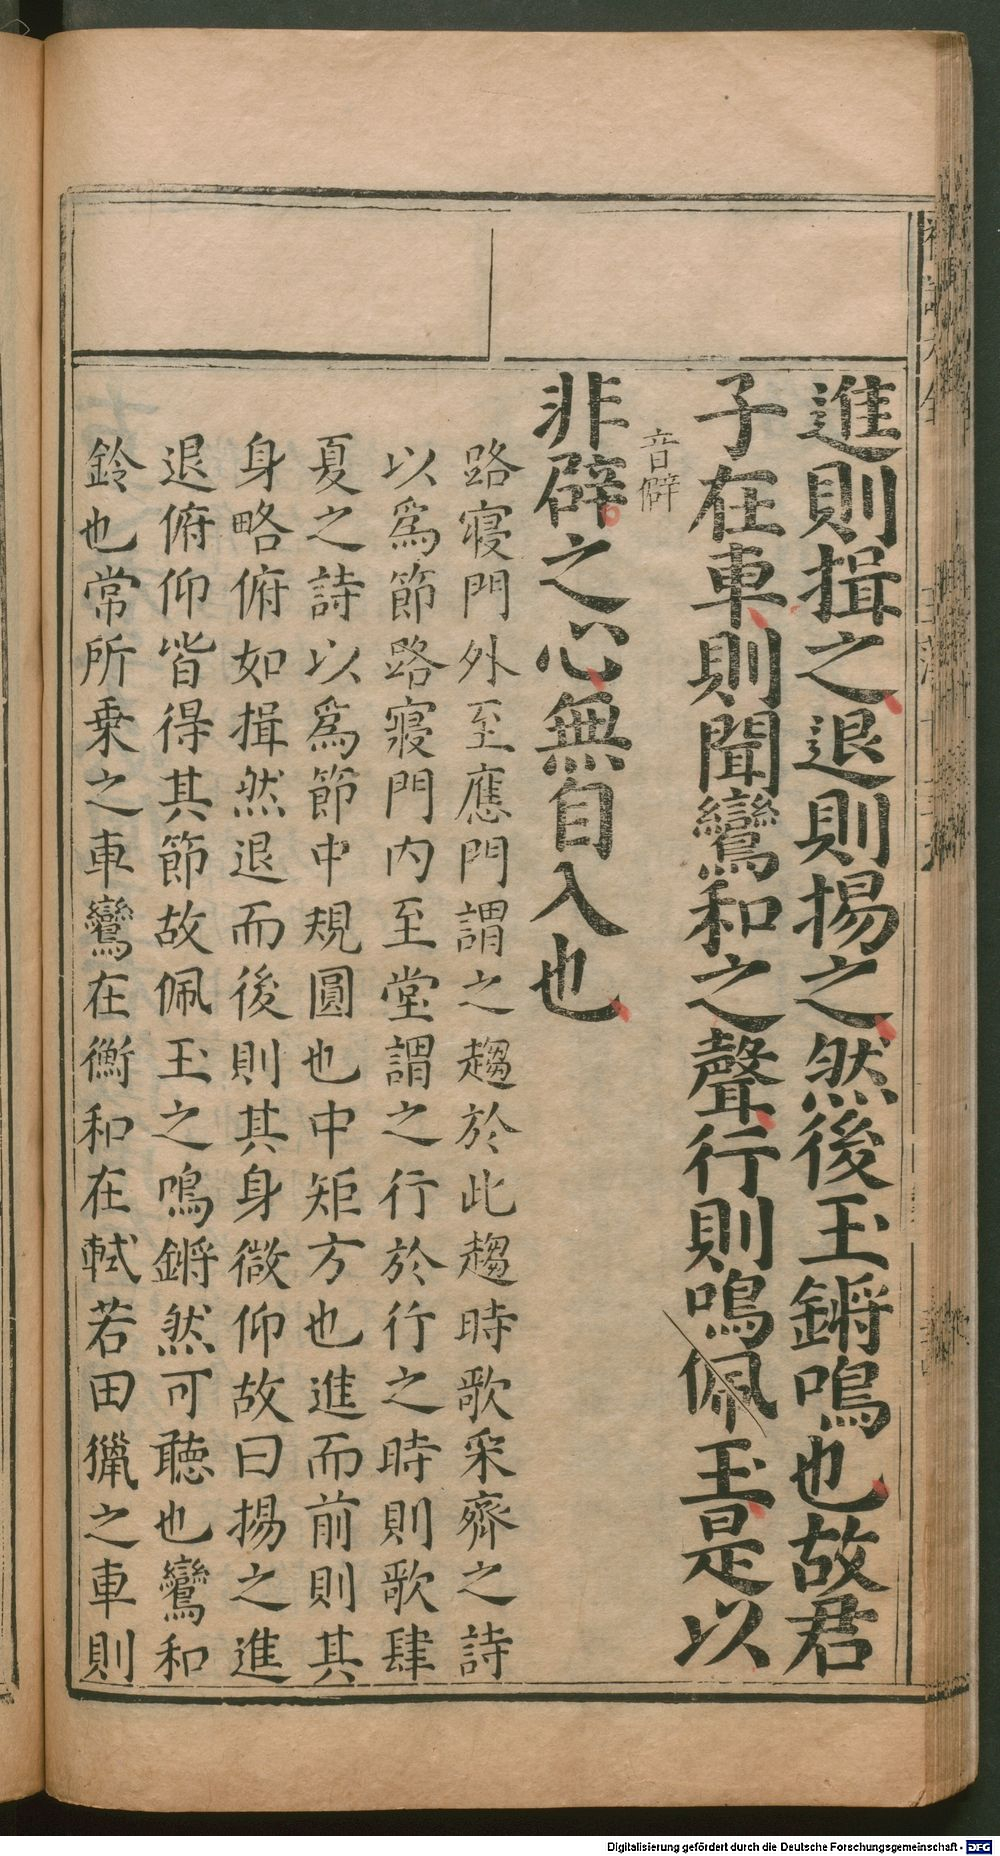 進則揖之退則揚之然後玉鏘鳴也故君
子在車則聞鸞和之聲行則鳴佩玉是以
音僻
非辟之心無自入也
路寢門外至應門謂之趨於此趨時歌采齊之詩
以爲節路寢門内至堂謂之行於行之時則歌肆
夏之詩以爲節中規圓也中矩方也進而前則其
身略俯如揖然退而後則其身微仰故曰揚之進
退俯仰皆得其節故佩玉之鳴鏘然可聽也鸞和
鈴也常所乗之車鸞在衡和在軾若田獵之車則
Digitalisierung gefördert durch die Deutsche Forschungsgemeinschaft - DFG